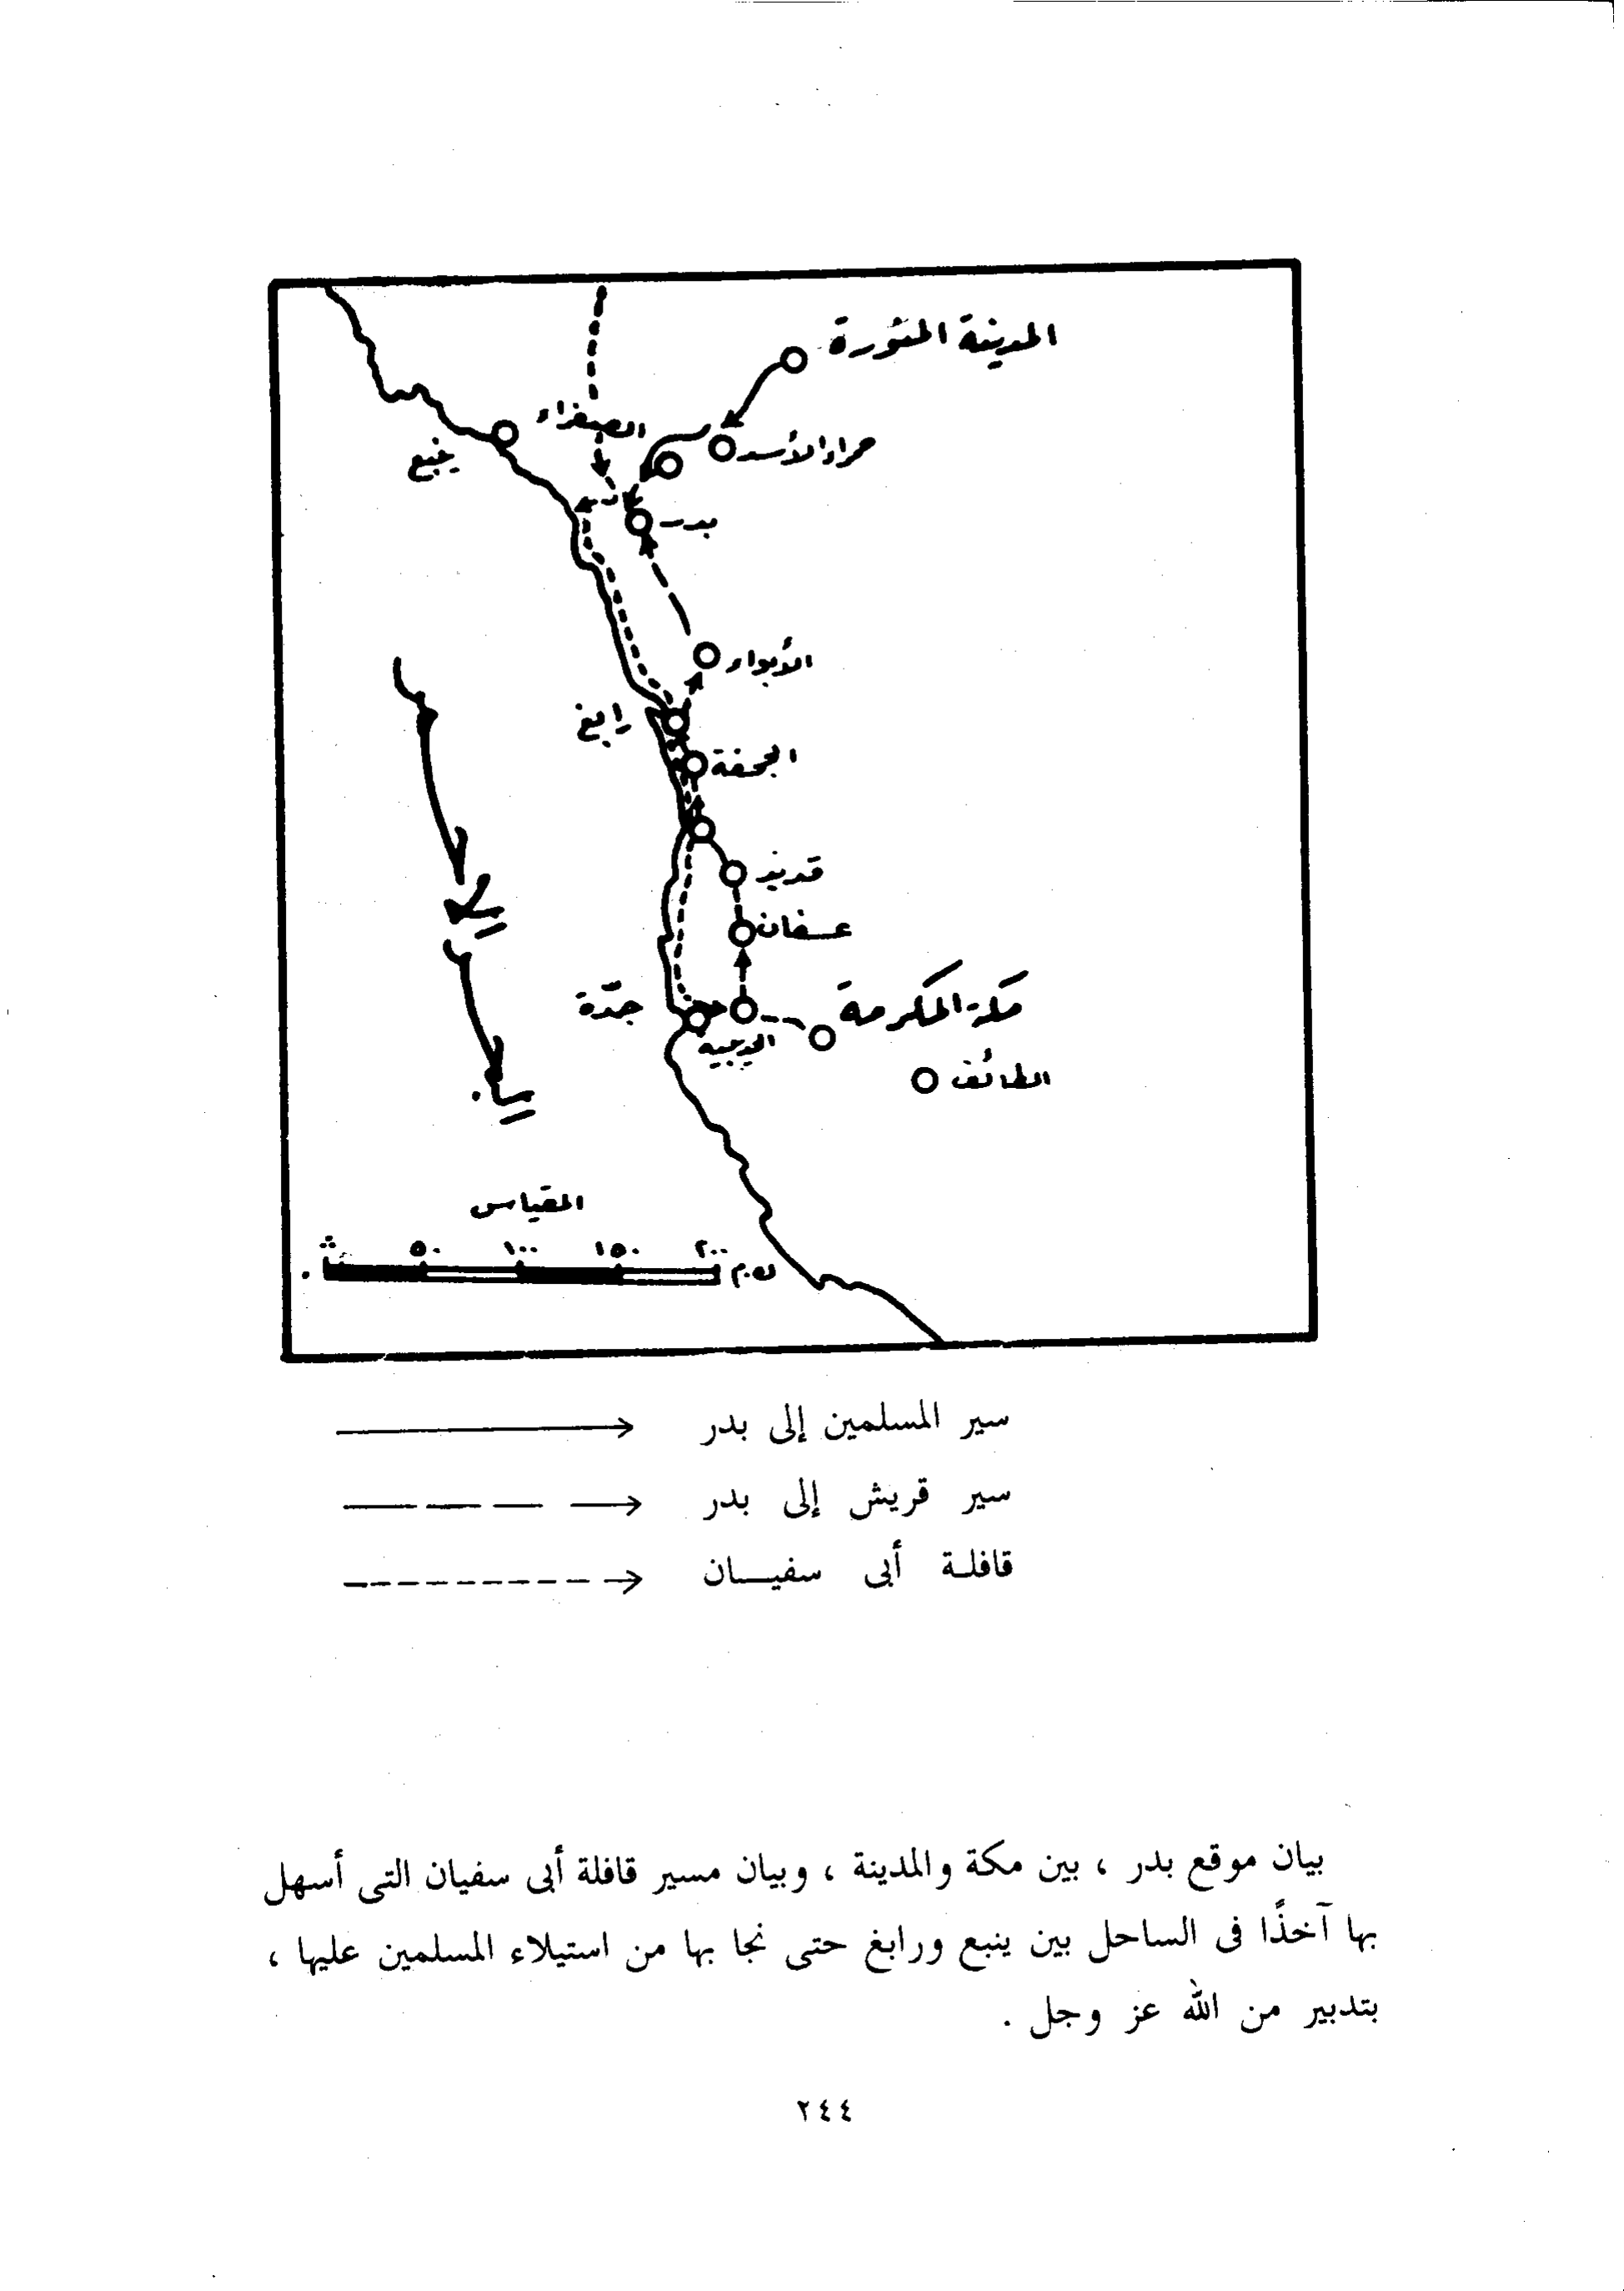 المدينة المنورة
الصفراء
حمراء الأسد
ينبع
بدر
الأبواء
رابغ
الجحفة
قديد
عسفان
جدّة
مكة المكرمة
الحديبية
الطائف
المقياس
٠ ٥٠ ١٠٠ ١٥٠ ٢٠٠ ك.م
سير المسلمين إلى بدر
سير قريش إلى بدر
قافلة أبى سفيان
بيان موقع بدر ، بين مكة والمدينة ، وبيان مسير قافلة أبى سفيان التى أسهل
بها آخذًا فى الساحل بين ينبع ورابغ حتى نجا بها من استيلاء المسلمين عليها ،
بتدبير من الله عز وجل .
٢٤٤